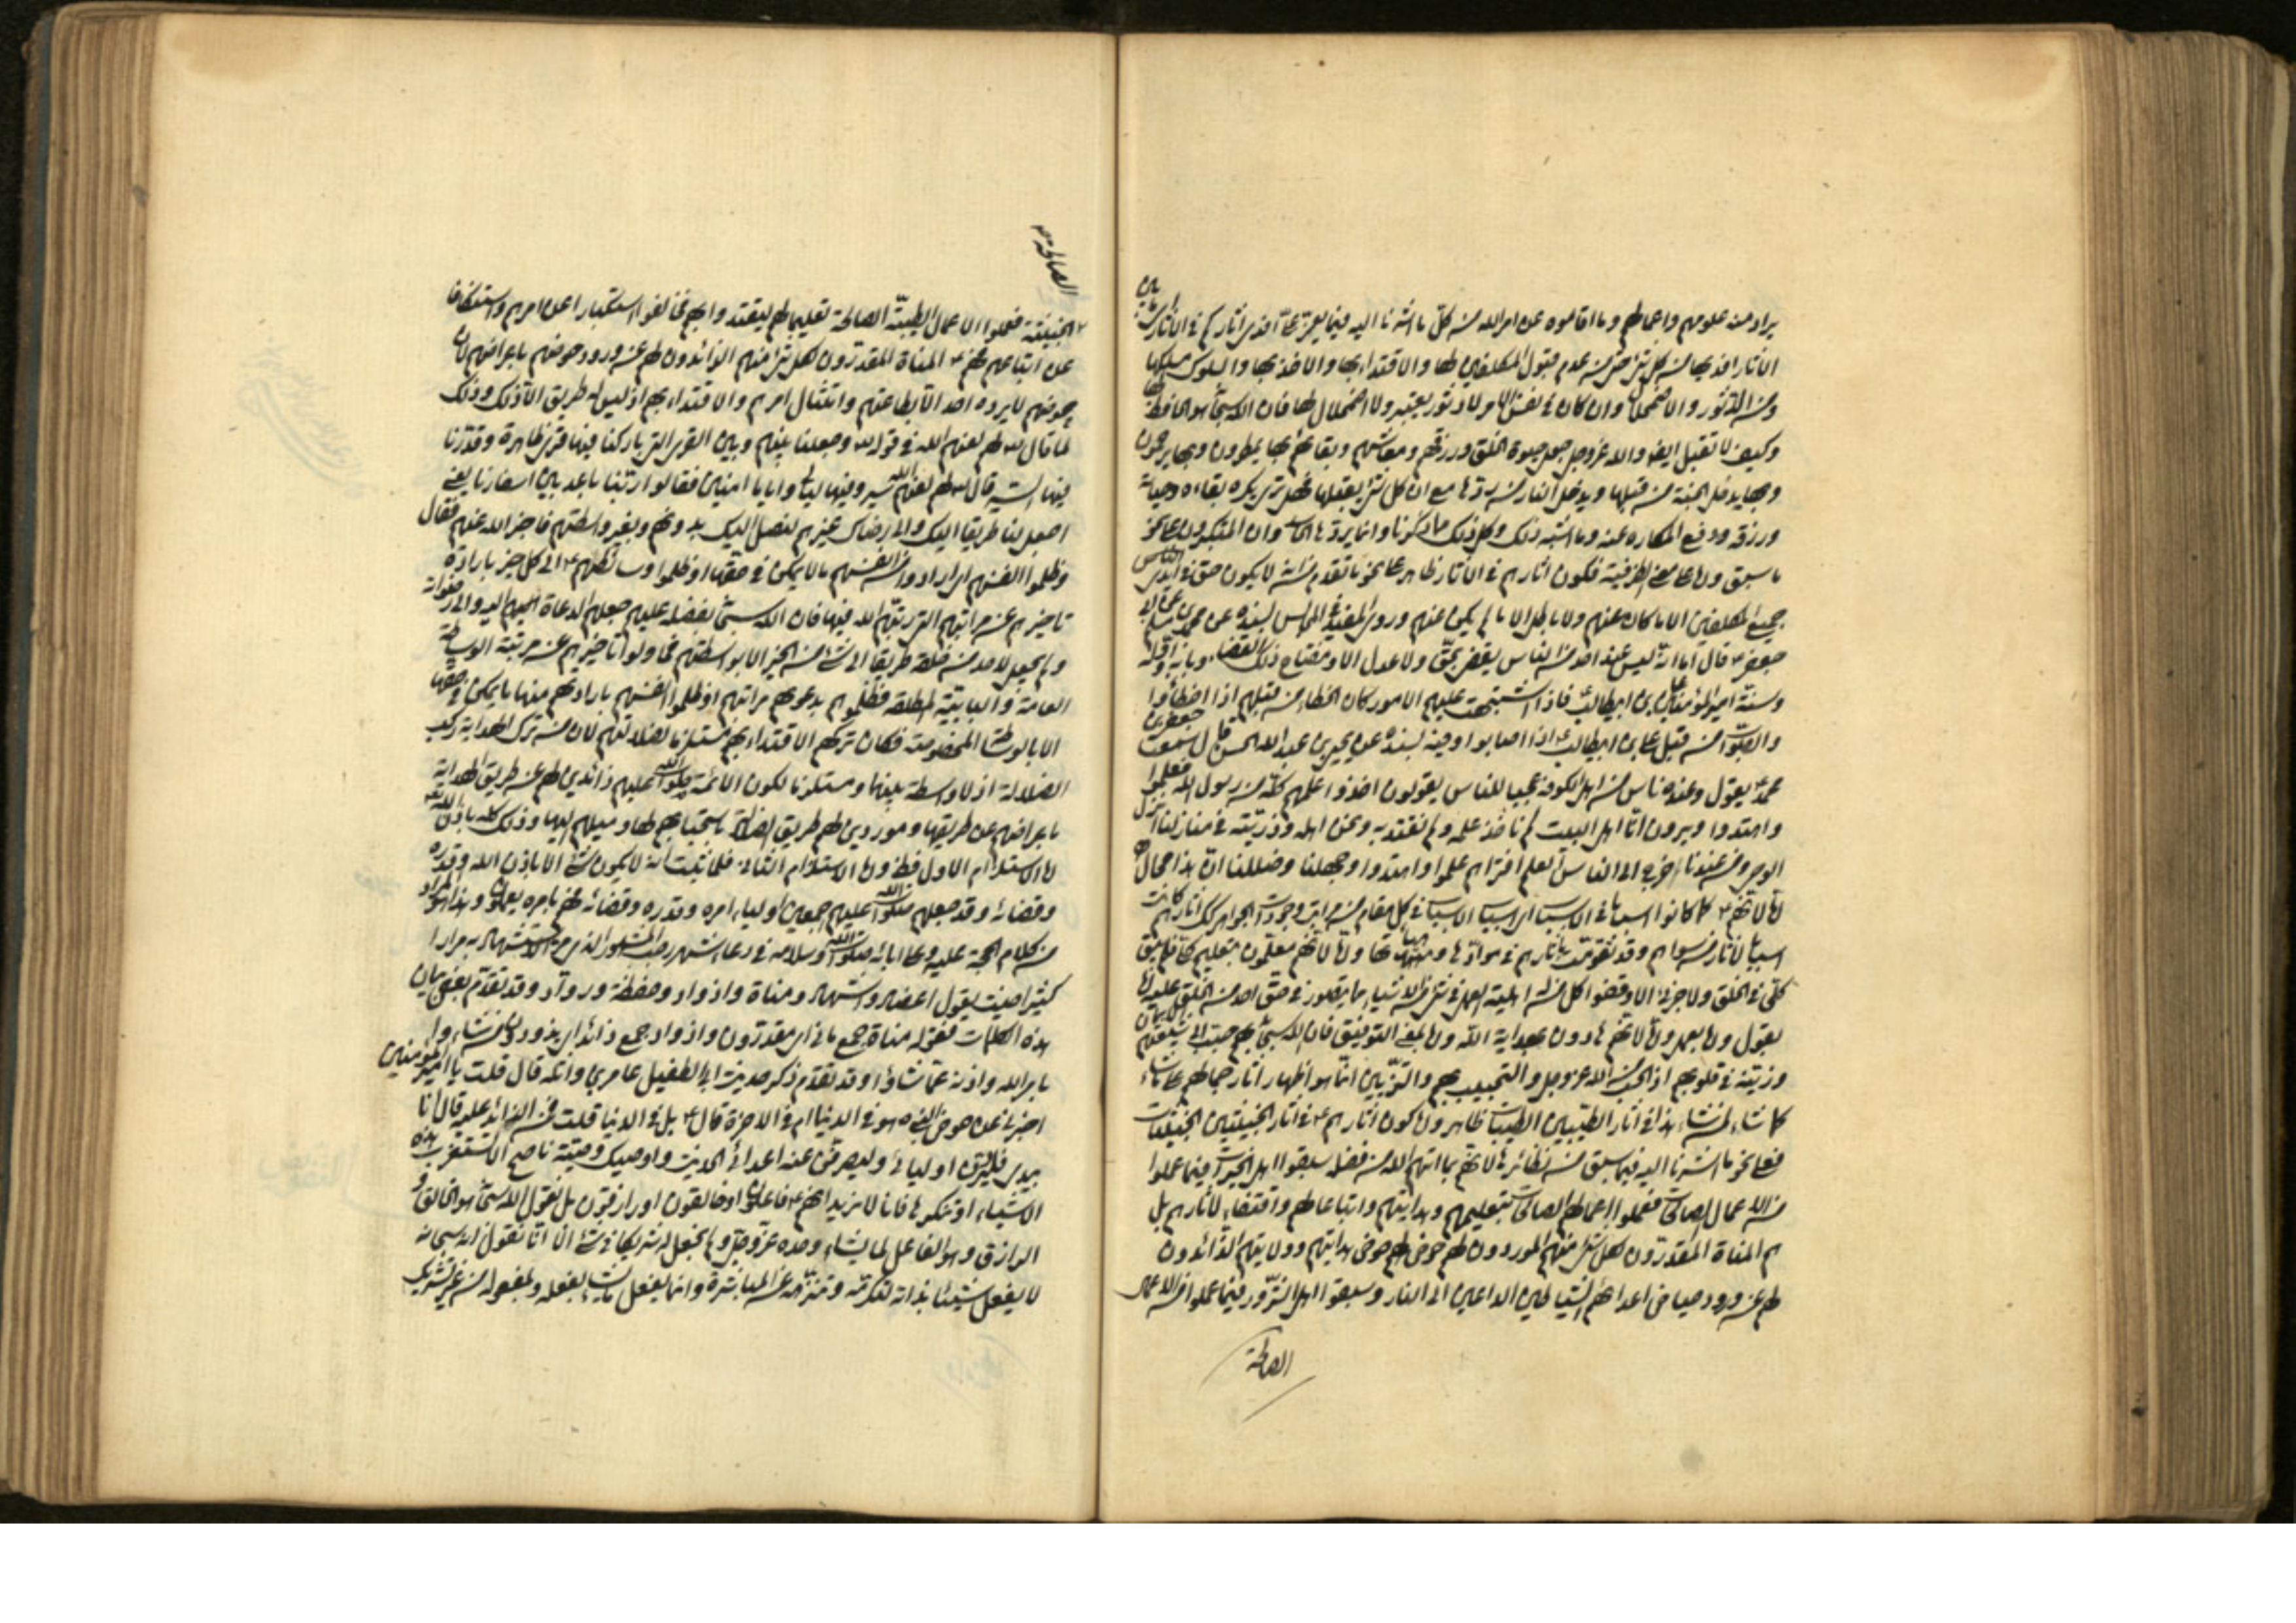 يراد من علومهم واعمالهم وما اقاموه عن امر الله من كل ما اشرنا اليه فيما يعز
الاثار اخذ بها من كل شئ حتى من عدم قبول المكلفين لها والاقتداء بها والاخذ بها والسلوك
ومن الدثور والاضمحلال وان كان في نفس الامر لا دثور يعتبر ولا اضمحلال لها فان الله سبحانه هو الحافظ لها
وكيف لا تقبل ايضا والله عز وجل جعل حيوة الخلق ورزقهم ومعاشهم وبقائهم بها يمطرون وبها يرحمون
وبها يدخل الجنة من قبلها ويدخل النار من ردها مع ان كل شئ يقبلها
ورزقه ودفع المكاره عنه وما اشبه ذلك وكل ذلك مما ذكرنا وانما يردها
ما سبق ولها على معنى الظرفية فكون اثارهم في الاثار ظاهر على نحو ما تقدم من انه لا يكون حق في ايدي الناس
جميع المكلفين الا ما كان عنهم ولا باطل الا ما لم يكن عنهم وروى المفيد في المجالس بسنده عن محمد بن مسلم عن ابي
جعفر ع قال اما انه ليس عند احد من الناس يقضي بحق ولا عدل الا ومفتاح ذلك القضاء وبابه واوله
وسنته امير المؤمنين علي بن ابيطالب فاذا اشتبهت عليهم الامور كان الخطاء من قبلهم اذا اخطاوا
والصواب من قبل علي بن ابيطالب ع اذا اصابوا وفيه بسنده عن يحيى بن عبد الله الحسن قال سمعت جعفر بن
محمد ع يقول وعنده ناس من اهل الكوفة عجبا للناس يقولون اخذوا علمهم كله من رسول الله فعلموا
واهتدوا ويرون انا اهل البيت لم ناخذ علمه ولم نقتد به ونحن اهله وذريته في منازلنا انزل
الوحي ومن عندنا خرج الى الناس العلم افتراهم علموا واهتدوا وجهلنا وضللنا ان هذا محال
لها لانهم ع لما كانوا اسبابا في الاسباب اي اسباب الاسباب في كل مقام من مراتب وجودات الجواهر كانت اثارهم
اسبابا لاثار من سواهم وقد تقومت باثارهم في موادها
كلي في الخلق ولا جزئي الا وقضوا
بقول ولا بعمل ولها لانهم هادون بهداية الله ولها بمعنى التوفيق فان الله سبحانه بهم حبب الى شيعتهم الايمان
وزينه في قلوبهم اذ الحب من الله عز وجل والتحبيب بهم والتزيين انما هو اظهار اثار جمالهم على ما شاء
كما شاء لمن شاء هذا في اثار الطيبين الطيبات ظاهر ولها كون اثارهم ع في اثار الخبيثين الخبيثات
فعلى نحو ما اشرنا اليه فيما سبق من نظائره لانهم بما اتاهم الله من فضله سبقوا اهل الخيرات فيما عملوا
من الاعمال الصالحات فعملوا اعمالهم الصالحات بتعليمهم وهدايتهم واتباعا لهم واقتفاء لاثارهم بل
هم المناة المقدرون لكل شئ منهم الموردون لهم حوض هدايتهم وولايتهم الذائدون
لهم عن ورود حياض اعدائهم الشياطين الداعين الى النار وسبقوا اهل الشرور فيما عملوا من الاعمال
الصالحة
الصالحة
الخبيثة فعملوا الاعمال الطيبة الصالحة تعليما لهم ليقتدوا بهم فخالفوا استكبارا عن امرهم واستنكافا
عن اتباعهم فهم ع المناة المقدرون لكل شئ منهم الذائدون لهم عن ورود حوضهم باعراضهم لان
حوضهم لا يرده احد الا بطاعتهم وامتثال امرهم والاقتداء بهم اذ ليس له طريق الا ذلك وذلك
لما قال لهم لعنهم الله في قوله وجعلنا بينهم وبين القرى التي باركنا فيها قرى ظاهرة وقدرنا
فيها السير قال لهم لعنهم الله سيروا فيها ليالي واياما امنين فقالوا ربنا باعد بين اسفارنا يعني
اجعل لنا طريقا اليك والى رضاك غيرهم لنصل اليك بدونهم وبغير واسطتهم فاخبر الله عنهم فقال
وظلموا انفسهم اي ارادوا من انفسهم ما لا يمكن في حقها او ظلموا وسائطهم ع الى كل خير بارادة
تاخيرهم عن مراتبهم التي رتبهم الله فيها فان الله سبحانه بفضله عليهم جعلهم الدعاة اليه والى رضوانه
ولم يجعل لاحد من خلقه طريقا الى شئ من الخير الا بواسطتهم فحاولوا تاخيرهم عن مرتبة الوساطة
العامة والبابية المطلقة فظلموهم بدعوى مراتبهم او ظلموا انفسهم بارادتهم منها ما لا يمكن في حقها
الا بالوساطة المخصوصة فكان تركهم الاقتداء بهم مستلزما لضلالتهم لان من ترك الهداية ركب
الضلالة اذ لا واسطة بينهما ومستلزما لكون الائمة صلوات الله عليهم ذائدين لهم عن طريق الهداية
باعراضهم عن طريقها وموردين لهم طريق الضلالة باستحبابهم لها وميلهم اليها وذلك كله باذن الله
لها الاستلزام الاول فظ ولها الاستلزام الثاني فلما ثبت انه لا يكون شئ الا باذن الله وقدره
وقضائه وقد جعلهم صلوات الله عليهم اجمعين اولياء امره وقدره وقضائه فهم بامره يعملون وهذا هو المراد
من كلام الحجة عليه وعلى ابائه صلوات الله وسلامه في دعاء شهر رجب المشهور الذي مر الاستشهاد به مرارا
كثيرا حيث يقول اعضاد واشهاد ومناة واذواد وحفظة ورواد وقد تقدم بعض بيان
هذه الكلمات فقوله مناة جمع مان اي مقدرون واذواد جمع ذائد اي يذودون من شاءوا
بامر الله واذنه عما شاؤا وقد تقدم ذكر حديث ابي الطفيل عامر بن واثلة قال قلت يا امير المؤمنين
اخبرني عن حوض النبي ص هو في الدنيا ام في الاخرة قال ع بل في الدنيا قلت فمن الذائد عليه قال انا
بيدي فليردنه اوليائي وليصرفن عنه اعدائي الحديث واوصيك وصية ناصح الا تستغرب هذه
الاشياء او تنكرها فانا لا نريد انهم ع فاعلون او خالقون او رازقون بل نقول الله سبحانه هو الخالق
الرازق وهو الفاعل لما يشاء وحده عز وجل ولم نجعل له شريكا في شئ الا انا نقول انه سبحانه
لا يفعل شيئا بذاته لتكرمه وتنزهه عن المباشرة وانما يفعل ما يشاء بفعله وبمفعوله من غير تشريك